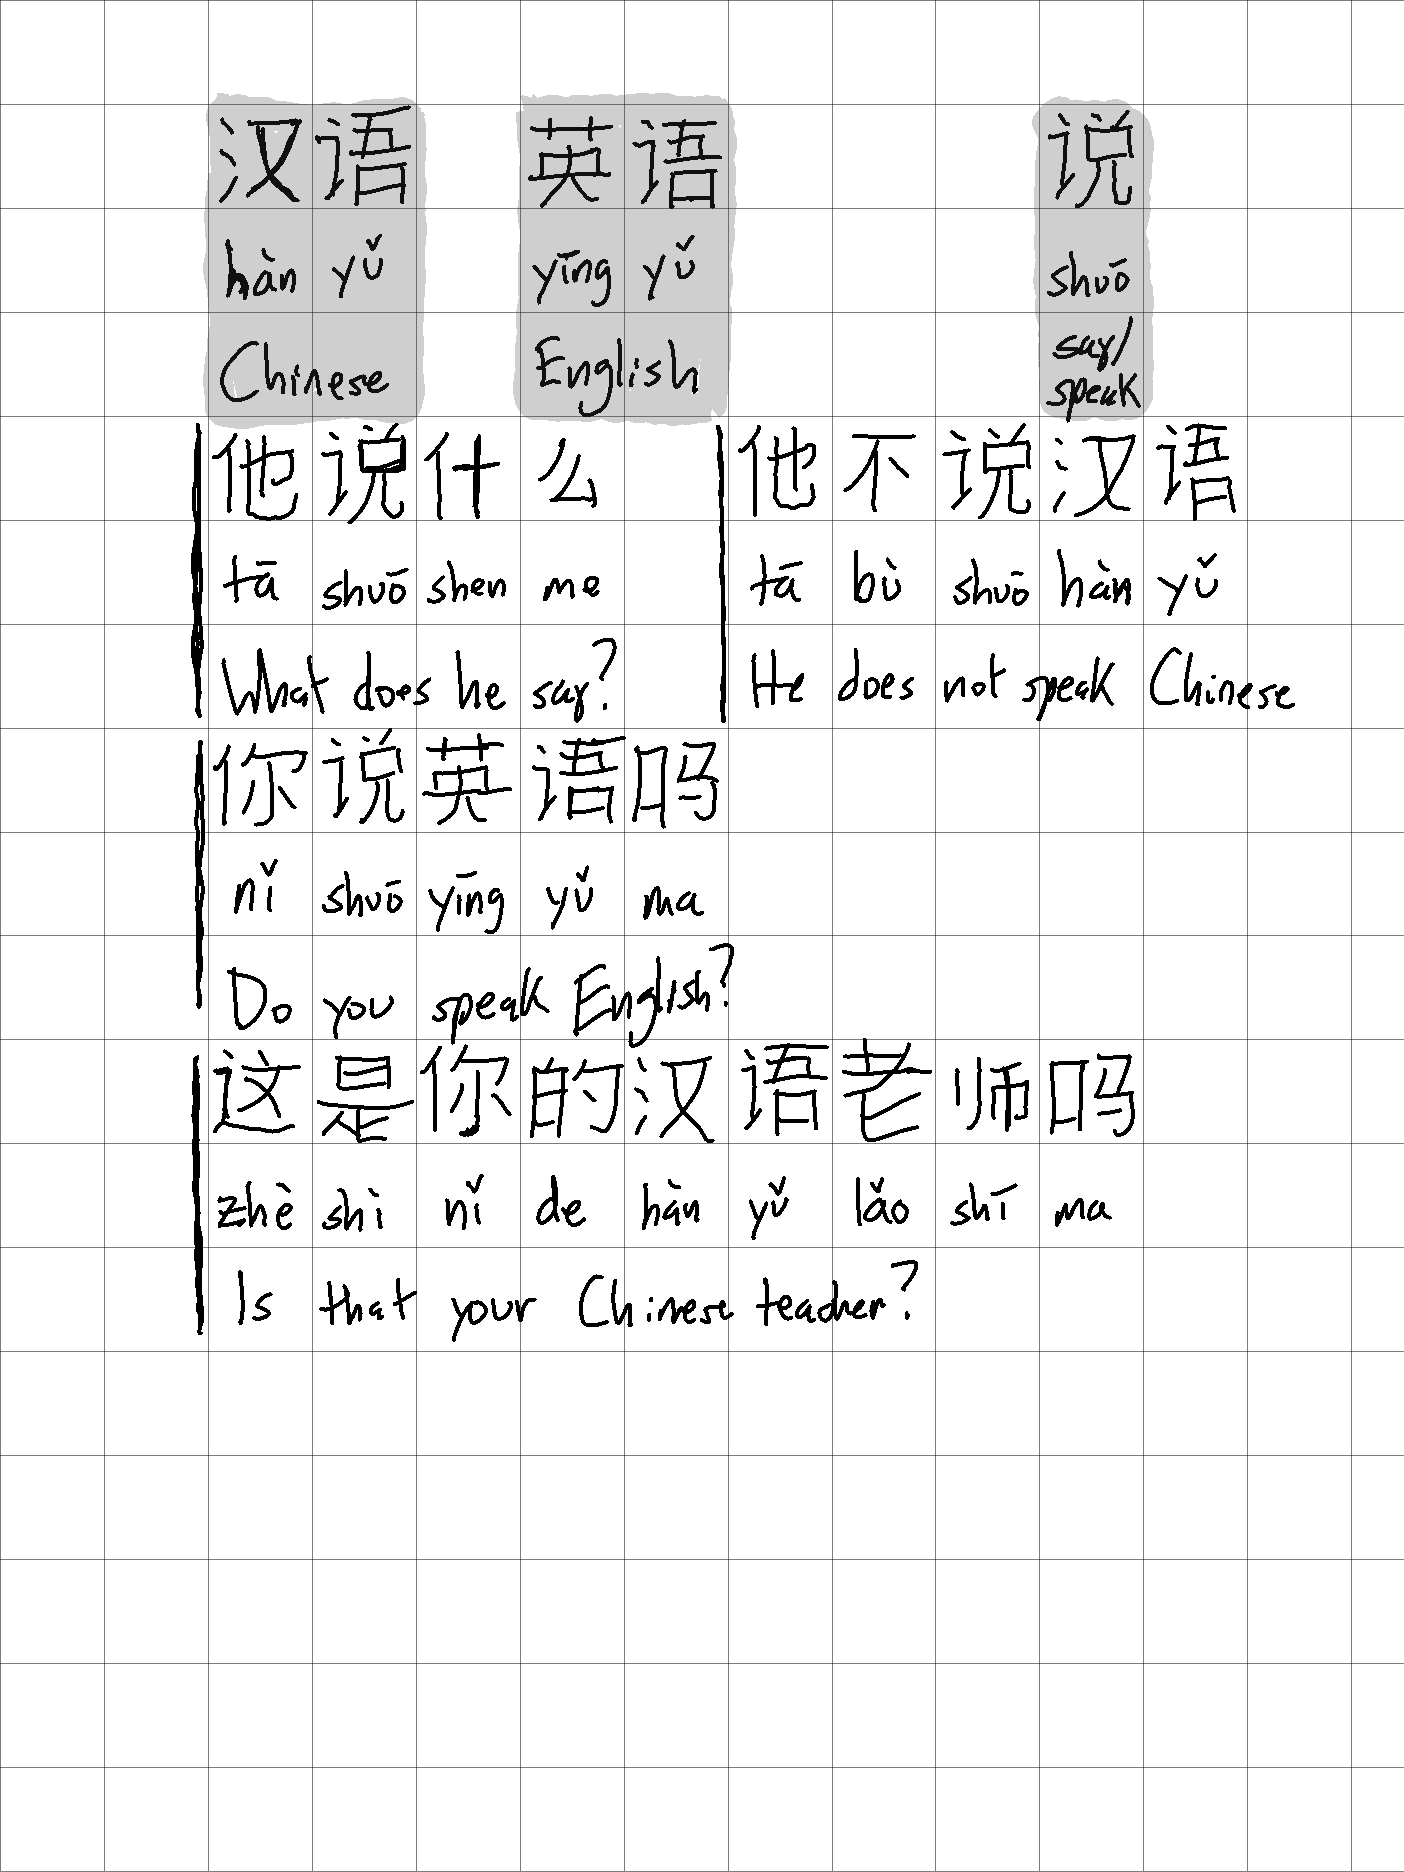 汉语 英语 说
hàn yǔ yīng yǔ shuō
Chinese English say/
speak
他说什么 他不说汉语
tā shuō shen me tā bù shuō hàn yǔ
What does he say? He does not speak Chinese
你说英语吗
nǐ shuō yīng yǔ ma
Do you speak English?
这是你的汉语老师吗
zhè shì nǐ de hàn yǔ lǎo shī ma
Is that your Chinese teacher?